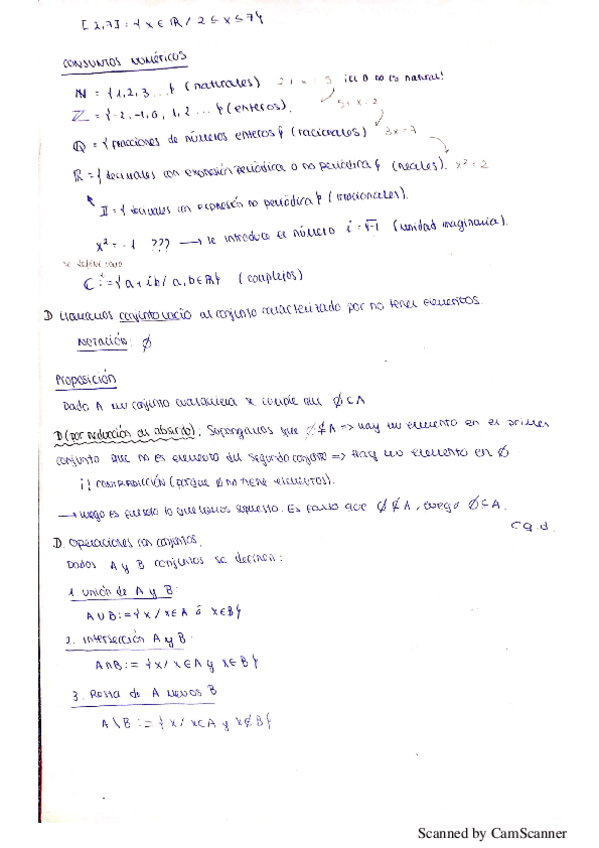 [2,7] = { x ∈ ℝ / 2 ≤ x ≤ 7 }
CONJUNTOS NUMÉRICOS
ℕ = {1, 2, 3 ... } (naturales) ¡el 0 no es natural!
ℤ = {-2, -1, 0, 1, 2 ... } (enteros).
ℚ = { fracciones de números enteros } (racionales) 3x = 7
ℝ = { decimales con expresión periódica o no periódica } (reales). x² = 2
𝕀 = { decimales con expresión no periódica } (irracionales).
x² = -1 ??? → se introduce el número i = √-1 (unidad imaginaria).
se define como
ℂ := { a + ib / a, b ∈ ℝ } (complejos)
D Llamamos conjunto vacío al conjunto caracterizado por no tener elementos.
Notación: ∅
Proposición
Dado A un conjunto cualquiera se cumple que ∅ ⊂ A
D (por reducción al absurdo): Supongamos que ∅ ⊄ A => hay un elemento en el primer
conjunto que no es elemento del segundo conjunto => Hay un elemento en ∅
¡! CONTRADICCIÓN (porque ∅ no tiene elementos).
→ luego es falso lo que hemos supuesto. Es falso que ∅ ⊄ A, luego ∅ ⊂ A.
c.q.d.
D. Operaciones con conjuntos.
Dados A y B conjuntos se definen:
1. unión de A y B:
A ∪ B := { x / x ∈ A ó x ∈ B }
2. Intersección A y B:
A ∩ B := { x / x ∈ A y x ∈ B }
3. Resta de A menos B
A \ B := { x / x ∈ A y x ∉ B }
Scanned by CamScanner